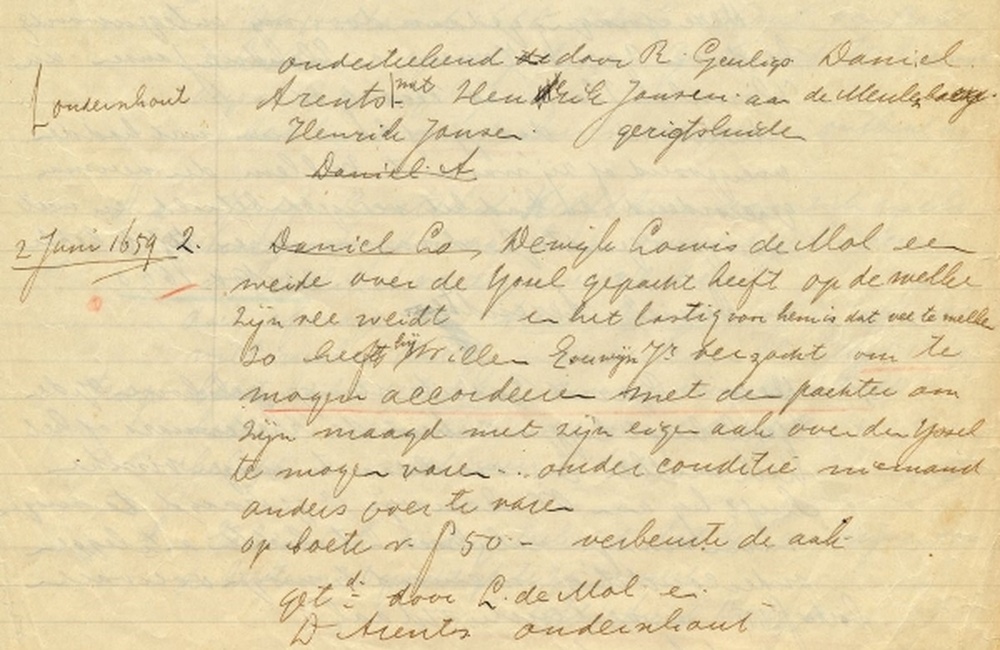 onderteekend door R. Gerligs Daniel
[onderschout Arents met Hendrik Jansen aan de Meulenbarg
Henrik Jansen gerigtsluide
Daniel A
2 Juni 1659 2. Daniel Co, Dewijl Lowis de Mol een
weide over de Yssel gepacht heeft op de welke
zijn vee weidt en het lastig voor hem is dat vee te melken
So heeft hij Willem verzocht om te
mogen accorderen met den pachter om
zijn maagd met zijn eigen aak over den Yssel
te mogen varen - . onder conditie niemand
anders over te varen
op boete v. f 50 - verbeurte de aak
get d. door L. de Mol en
D Arents onderschout